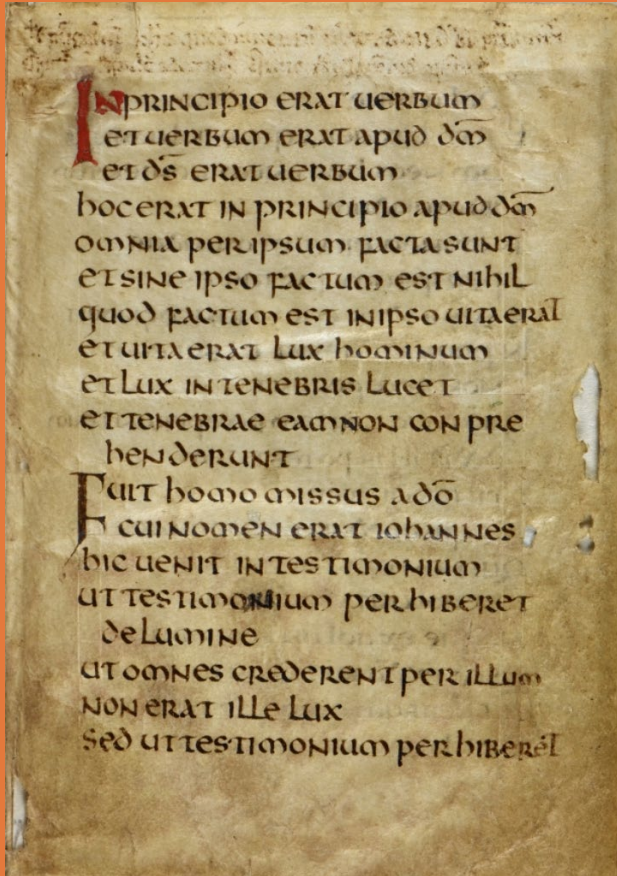 IN PRINCIPIO ERAT UERBUM
ET UERBUM ERAT APUD DM̅
ET DS̅ ERAT UERBUM
HOC ERAT IN PRINCIPIO APUD DM̅
OMNIA PER IPSUM FACTA SUNT
ET SINE IPSO FACTUM EST NIHIL
QUOD FACTUM EST IN IPSO UITA ERAT
ET UITA ERAT LUX HOMINUM
ET LUX IN TENEBRIS LUCET
ET TENEBRAE EAM NON CONPRE
HENDERUNT
FUIT HOMO MISSUS A DO̅
CUI NOMEN ERAT IOHANNES
HIC UENIT IN TESTIMONIUM
UT TESTIMONIUM PERHIBERET
DE LUMINE
UT OMNES CREDERENT PER ILLUM
NON ERAT ILLE LUX
SED UT TESTIMONIUM PERHIBERET